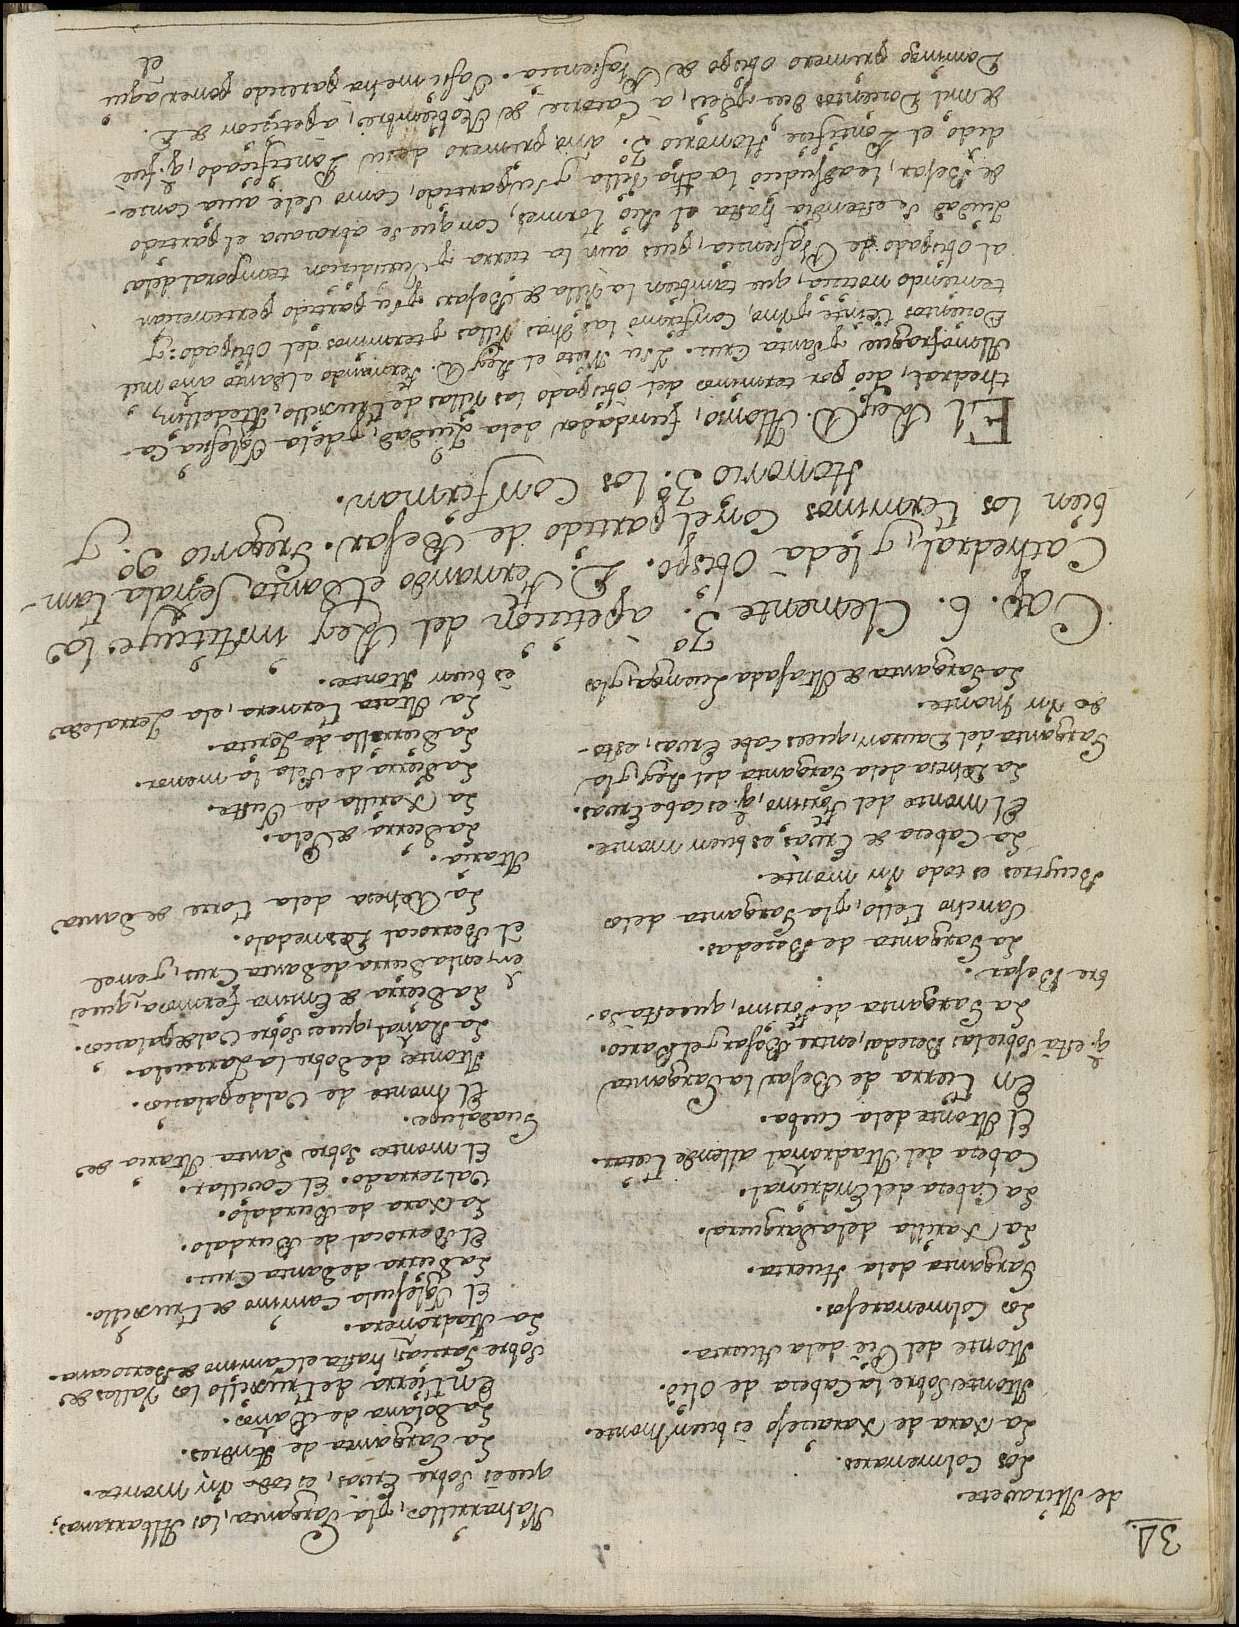 34
de Miravete.
Los Colmenares.
La Xara de Xaraicejo ès buen monte.
Monte sobre la Cabeza de Olid.
Monte del Pie dela Muerta.
Los Colmenarejos.
Garganta dela Huerta.
La Xarilla dela
La Cabeza del Endrinal.
Cabeza del Madroñal allende Tietar.
El Monte dela Cueba.
En tierra de Bejar la Garganta
q̃ està sobre las Beredas, entre Bejar, y el Barco.
La Garganta de que està so-
bre Bejar.
La Garganta de Beredas.
Sancho Tello, y la Garganta delos
Buytres es todo Vn monte.
La Cabeza de Ervas, es buen monte.
El monte del q̃ es cabe Ervas.
La Dehesa dela Garganta del Rey, y la
Garganta del que es cabe Ervas, esto-
do Vn monte.
La Garganta de Majada Luenga, y los
Naharrillos, y la Garganta, los Albarranas,
que ès sobre Ervas, es todo Vn monte.
La Garganta de Andres.
La Solana de Baños.
En tierra de Truxillo los Valles de
sobre Garcias, hasta el Camino de Berzocana.
La Madroñera.
El Iglesuela Camino de Truxillo.
La Sierra de Santa Cruz.
El Berrocal de Burdalo.
La Xara de Burdalo.
Valzerrado. El Covillar.
El monte sobre Santa Maria de
Guadalupe.
El monte de Valdepalacios.
Monte de sobre la
La que es sobre Valdepalacios.
La Sierra de que ès
en la Sierra de Santa Cruz, y en el
el Berrocal
La Dehesa dela Torre de Santa
Maria.
La Sierra de Vela.
La Xarilla de
La Sierra de Pela la menor.
La Sierrilla de Zorita.
La Mata Termera, ela Zerraleda
ès buen Monte.
Cap. 6. Clemente 3.º apeticion del Rey instituye la
Cathedral, y le dà Obispo. D. Fernando el Santo señala tam-
bien los terminos con el partido de Bejar. Gregorio 9.º y
Honorio 3.º los confirman.
El Rey D. Alonso, fundador dela Ziudad, y dela Iglesia Ca-
thedral, dio por terminos del Obispado las Villas de Truxillo, Medellin,
Monofrague y Santa Cruz. Y su Nieto el Rey D. Fernando el Santo año mil
Docientos Veinte y Vno, confirmò las dhas Villas y terminos del Obispado: y
teniendo noticia, que tambien la Villa de Bejar y su partido pertenecian
al Obispado de Plasencia, pues aun la tierra y Iuridicion temporal dela
Ziudad se estendia hasta el Rio Tormes, con que se abrazava el partido
de Bejar, le adjudicò la dha Villa y su partido, como se le avia conce-
dido el Pontifize Honorio 3.º año primero de su Pontificado, q̃ fuè
de mil Docientos Diez y Seis, à Catorze de Nobiembre, à peticion de D.
Domingo primero Obispo de Plasencia. Y asi me ha parecido poner aqui
el